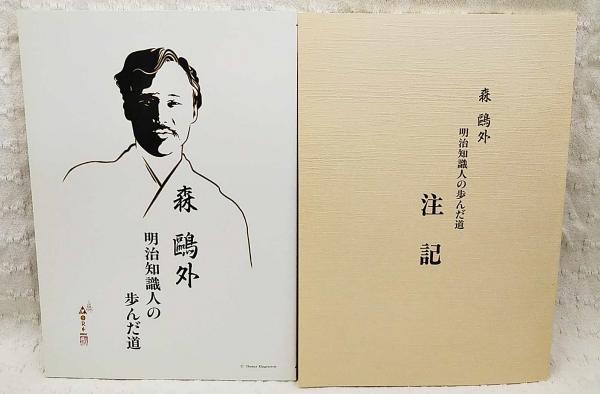 森鷗外
明治知識人の
歩んだ道
森鷗外
明治知識人の歩んだ道
注記